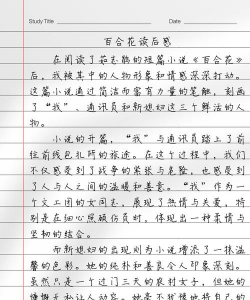 Study Title
Date
百合花读后感
在阅读了茹志鹃的短篇小说《百合花》
后，我被其中的人物形象和情感深深打动。
这篇小说通过简洁而富有力量的笔触，刻画
了“我”、通讯员和新媳妇这三个鲜活的人
物。
小说的开篇，“我”与通讯员踏上了前
往前线包扎所的旅途。在这个过程中，我们
不仅感受到了战争的紧张与危险，也感受到
了人与人之间的温暖和善意。“我”作为一
个文工团的女同志，展现了热情与关爱，特
别是在细心照顾伤员时，体现出一种柔情与
坚韧的结合。
而新媳妇的出现则为小说增添了一抹温
馨的色彩。她的纯朴和善良令人印象深刻。
虽然只是一个过门三天的农村女子，但她的
慷慨无私让人动容。她毫不犹豫地将自己